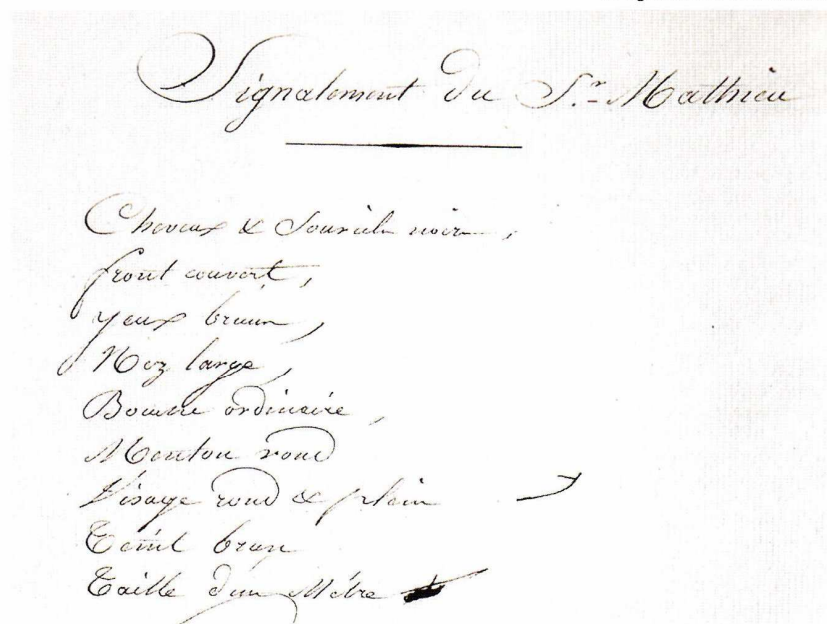 Signalement du S.r Mathieu
Cheveux & Sourcils noirs,
front couvert,
yeux bruns,
Nez large,
Bouche ordinaire,
Menton rond
Visage rond & plein
Teint brun
Taille d'un Mètre